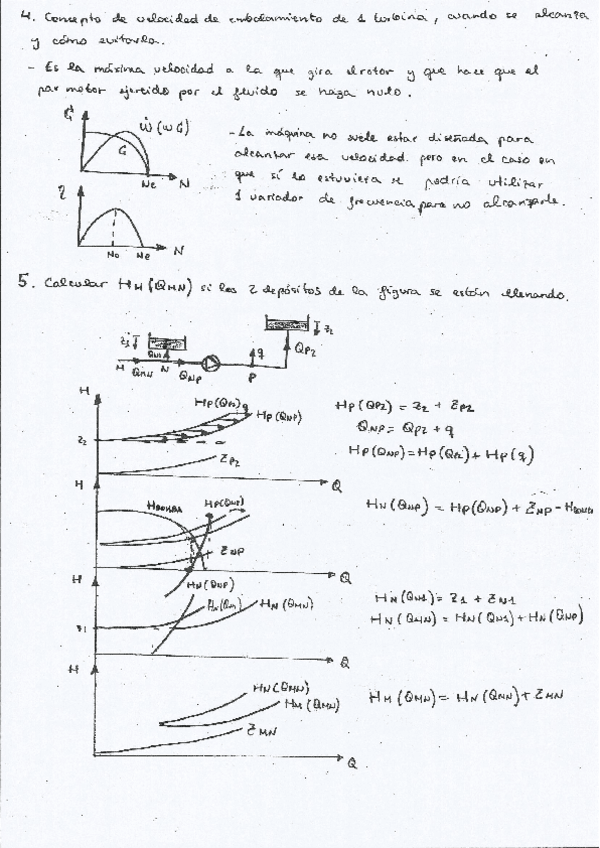 4. Concepto de velocidad de embalamiento de 1 turbina, cuando se alcanza
y cómo evitarla.
- Es la máxima velocidad a la que gira el rotor y que hace que el
par motor ejercido por el fluido se haga nulo.
G
Ẇ(ωG)
G
Ne
N
η
No
Ne
N
- La máquina no suele estar diseñada para
alcanzar esa velocidad. pero en el caso en
que sí lo estuviera se podría utilizar
1 variador de frecuencia para no alcanzarla.
5. Calcular HM(QMN) si los 2 depósitos de la figura se están llenando.
z1
QN1
M
QMN
N
QNP
q
P
QP2
z2
H
HP(QP2)
q
HP(QNP)
z2
ZP2
Q
HP(QP2) = z2 + ZP2
QNP = QP2 + q
HP(QNP) = HP(QP2) + HP(q)
H
HBOMBA
HP(QNP)
ZNP
HN(QNP)
Q
HN(QNP) = HP(QNP) + ZNP - HBOMBA
H
HN(QN1)
HN(QMN)
z1
Q
HN(QN1) = z1 + ZN1
HN(QMN) = HN(QN1) + HN(QNP)
H
HN(QMN)
HM(QMN)
ZMN
Q
HM(QMN) = HN(QMN) + ZMN